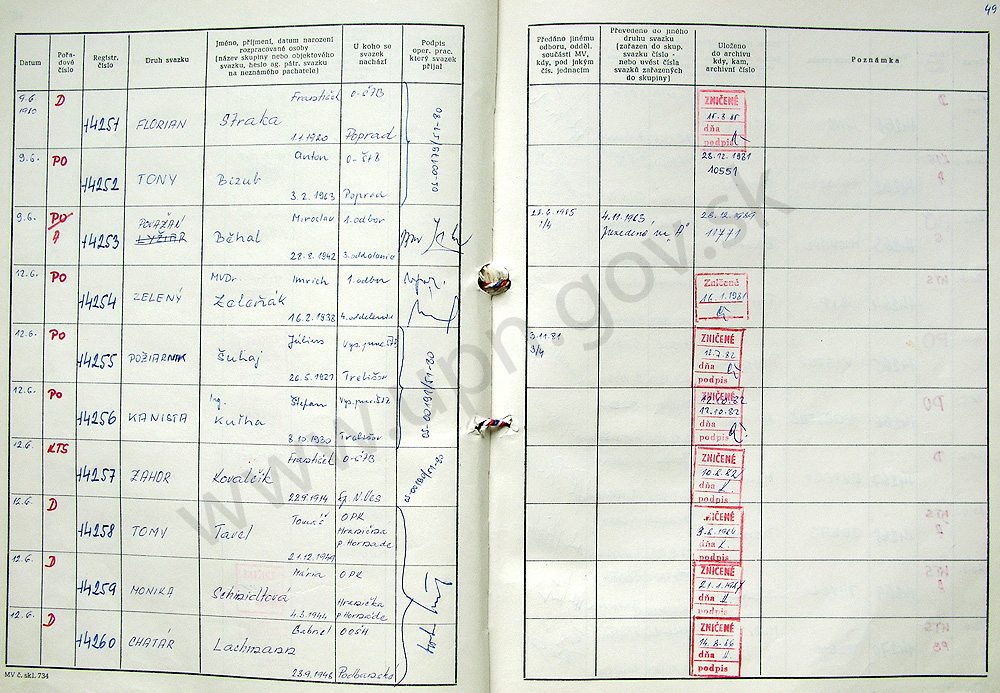 49
Datum
Pořa-
dové
číslo
Registr.
číslo
Druh svazku
Jméno, příjmení, datum narození
rozpracované osoby
(název skupiny nebo objektového
svazku, heslo ag. pátr. svazku
na neznámého pachatele)
U koho se
svazek
nachází
Podpis
oper. prac.
který svazek
přijal
Předáno jinému
odboru, odděl.
součásti MV,
kdy, pod jakým
čís. jednacím
Převedeno do jiného
druhu svazku
(zařazen do skup.
svazku číslo -
nebo uvést čísla
svazků zařazených
do skupiny)
Uloženo
do archivu
kdy, kam,
archivní číslo
Poznámka
9.6
1980
D
14251
FLORIAN
František
Straka
1.1.1920
O-ŠTB
Poprad
ZNIČENÉ
dňa
podpis
9.6.
PO
14252
TONY
Anton
Bizub
3.2.1963
O-ŠTB
Poprad
OS-00179/51-80
28.12.1981
10551
9.6.
PO
A
14253
POVAŽAN
LYŽIAR
Miroslav
Běhal
28.8.1942
1.odbor
3.oddelenie
1/4
11771
12.6.
PO
14254
ZELENÝ
MVDr.
Imrich
Zeleňák
16.2.1938
1.odbor
4.oddelenie
Zničené
16.1.1981
12.6.
PO
14255
POŽIARNIK
Július
Šuhaj
26.5.1927
Trebišov
3.11.81
3/4
ZNIČENÉ
12.7.82
dňa
podpis
12.6.
PO
14256
KANISTA
Ing.
Štefan
8.10.1930
Trebišov
12.10.82
dňa
podpis
12.6.
KTS
14257
ZAHOR
František
Kovalčík
22.9.1914
O-ŠTB
Sp. N. Ves
ZNIČENÉ
10.6.82
dňa
podpis
12.6.
D
14258
TOMY
Tomáš
Tavel
21.12.1949
OPK
ZNIČENÉ
dňa
podpis
12.6.
D
14259
MONIKA
Mária
Schmidtová
4.3.1944
OPK
ZNIČENÉ
dňa
podpis
12.6.
D
14260
CHATÁR
Gabriel
Lachmann
23.9.1946
OOSH
ZNIČENÉ
14.8.86
dňa
podpis
MV č. skl. 734
www.upn.gov.sk